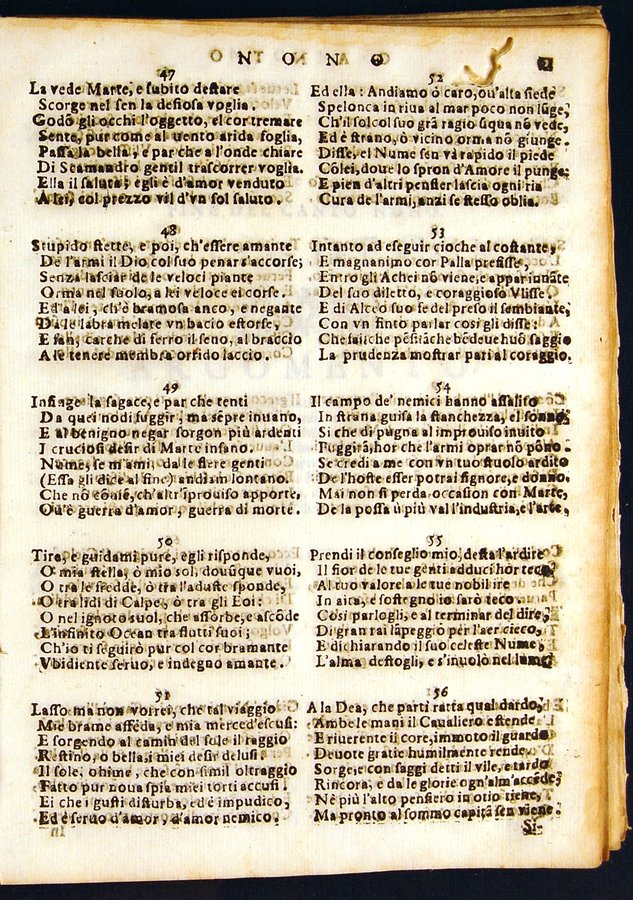 N O N O
47
La vede Marte, e subito destare
Scorge nel sen la desiosa voglia.
Godō gli occhi l'oggetto, el cor tremare
Sente, pur come al uento arida foglia,
Passa la bella, e par che a l'onde chiare
Di Scamandro gentil trascorrer voglia.
Ella il saluta; egli è d'amor venduto
A lei, col prezzo vil d'vn sol saluto.
48
Stupido stette, e poi, ch'essere amante
De l'armi il Dio col suo penar s'accorse;
Senza lasciar de le veloci piante
Orma nel suolo, a lei veloce ei corse.
Ed a lei, ch'è bramosa anco, e negante
Da le labra melare vn bacio estorse,
E fan, carche di ferro il seno, al braccio
A le tenere membra orrido laccio.
49
Infinge la sagace, e par che tenti
Da quei nodi fuggir, ma sēpre inuano,
E al benigno negar sorgon più ardenti
I cruciosi desir di Marte insano.
Nume, se m'ami, da le fiere genti
(Essa gli dice al fine) andiam lontano.
Che nō cōsiē, ch'altr'īprouiso apporte,
Ou'è guerra d'amor, guerra di morte.
50
Tira, e guidami pure, egli risponde,
O mia stella, ò mio sol, douūque vuoi,
O tra le fredde, ò tra l'aduste sponde,
O tra lidi di Calpe, ò tra gli Eoi:
O nel ignoto suol, che assorbe, e ascōde
E'infinito Ocean tra flutti suoi;
Ch'io ti seguirò pur col cor bramante
Vbidiente seruo, e indegno amante.
51
Lasso ma non vorrei, che tal viaggio
Mie brame affeda, e mia merced'escusi:
E sorgendo al camin del sole il raggio
Restino, o bella, i miei desir delusi.
Il sole, ohime, che con simil oltraggio
Fatto pur noua spia miei torti accusi.
Ei che i gusti disturba, ed è impudico,
Ed è seruo d'amor, d'amor nemico.
52
Ed ella: Andiamo ò caro, ou'alta siede
Spelonca in riua al mar poco non lūge,
Ch'il sol col suo grā ragio ūqua nō vede,
Ed è strano, ò vicino orma nō giunge.
Disse, el Nume sen và rapido il piede
Cōlei, doue lo spron d'Amore il punge;
E pien d'altri pensier lascia ogni ria
Cura de l'armi, anzi se stesso oblia.
53
Intanto ad eseguir cioche al costante,
E magnanimo cor Palla prefisse,
Entro gli Achei nō viene, e appar innāte
Del suo diletto, e coraggioso Vlisse.
E di Alceo suo fedel preso il sembiante,
Con vn finto parlar cosi gli disse:
Che fai, che pēsi? āche bēdeue huō saggio
La prudenza mostrar pari al coraggio.
54
Il campo de' nemici hanno assalito
In strana guisa la stanchezza, el sonno;
Si che di pugna al improuiso inuito
Fuggirà, hor che l'armi oprar nō pōno.
Se credi a me con vn tuo stuolo ardito
De l'hoste esser potrai signore, e donno.
Mai non si perda occasion con Marte,
De la possa ù più val l'industria, e l'arte,
55
Prendi il conseglio mio, desta l'ardire
Il fior de le tue genti adduci hor teco
Al tuo valor e a le tue nobil ire
In aita, e sostegno io sarò teco
Cosi parlogli, e al terminar del dire,
Di gran rai lāpeggiò per l'aer cieco,
E dichiarando il suo celeste Nume,
L'alma destogli, e s'inuolò nel lume
56
A la Dea, che partì ratta qual dardo,
Ambe le mani il Caualiero estende
E riuerente il core, immoto il guardo
Deuote gratie humilmente rende.
Sorge, e con saggi detti il vile, e tardo
Rincora, e da le glorie ogn'alm'accēde;
Nè più l'alto pensiero in otio tiene,
Ma pronto al sommo capitā sen viene.
Si-